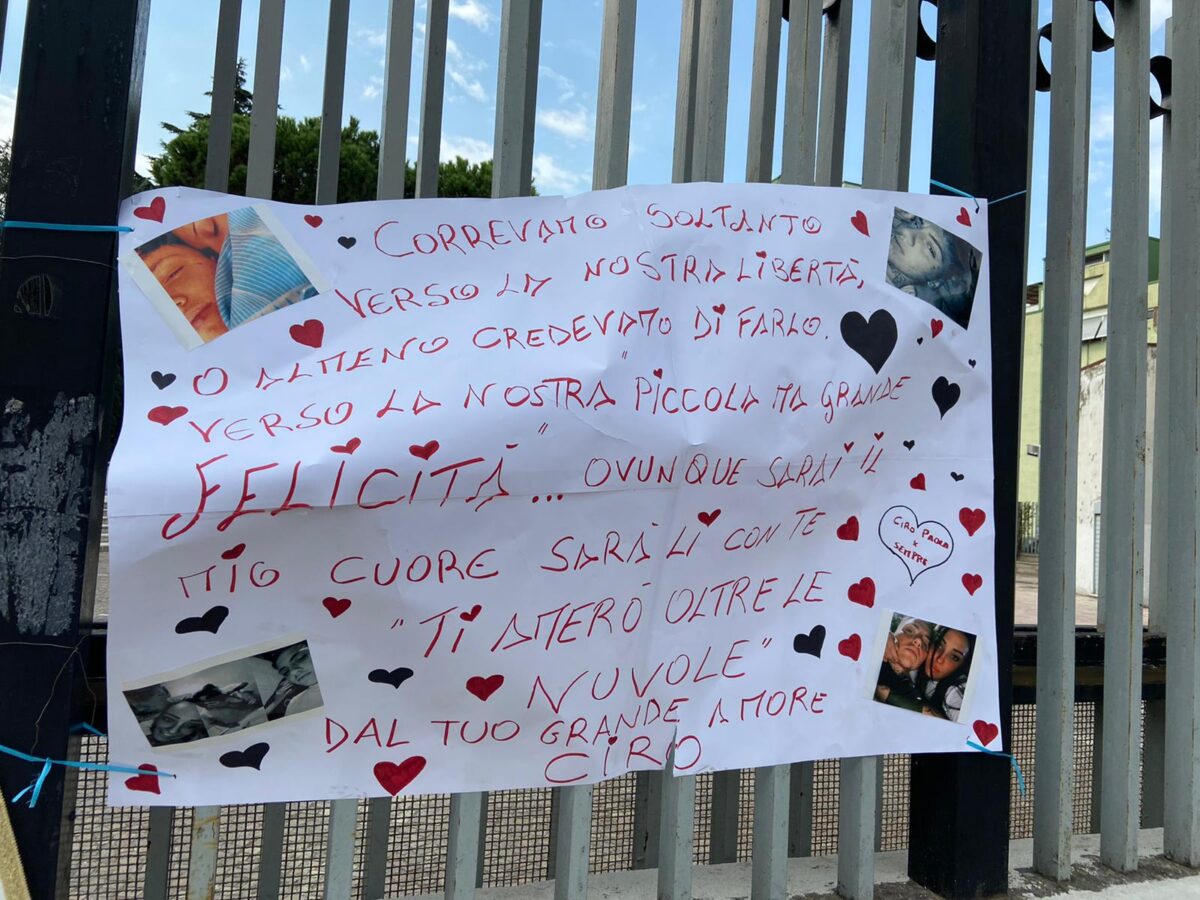 CORREVAMO SOLTANTO
VERSO LA NOSTRA LIBERTÀ,
O ALMENO CREDEVAMO DI FARLO.
VERSO LA NOSTRA "PICCOLA MA GRANDE
FELICITÀ"... OVUNQUE SARAI IL
MIO CUORE SARÀ LÌ CON TE
"TI AMERÒ OLTRE LE
NUVOLE"
DAL TUO GRANDE AMORE
CIRO
CIRO PAOLA
X
SEMPRE